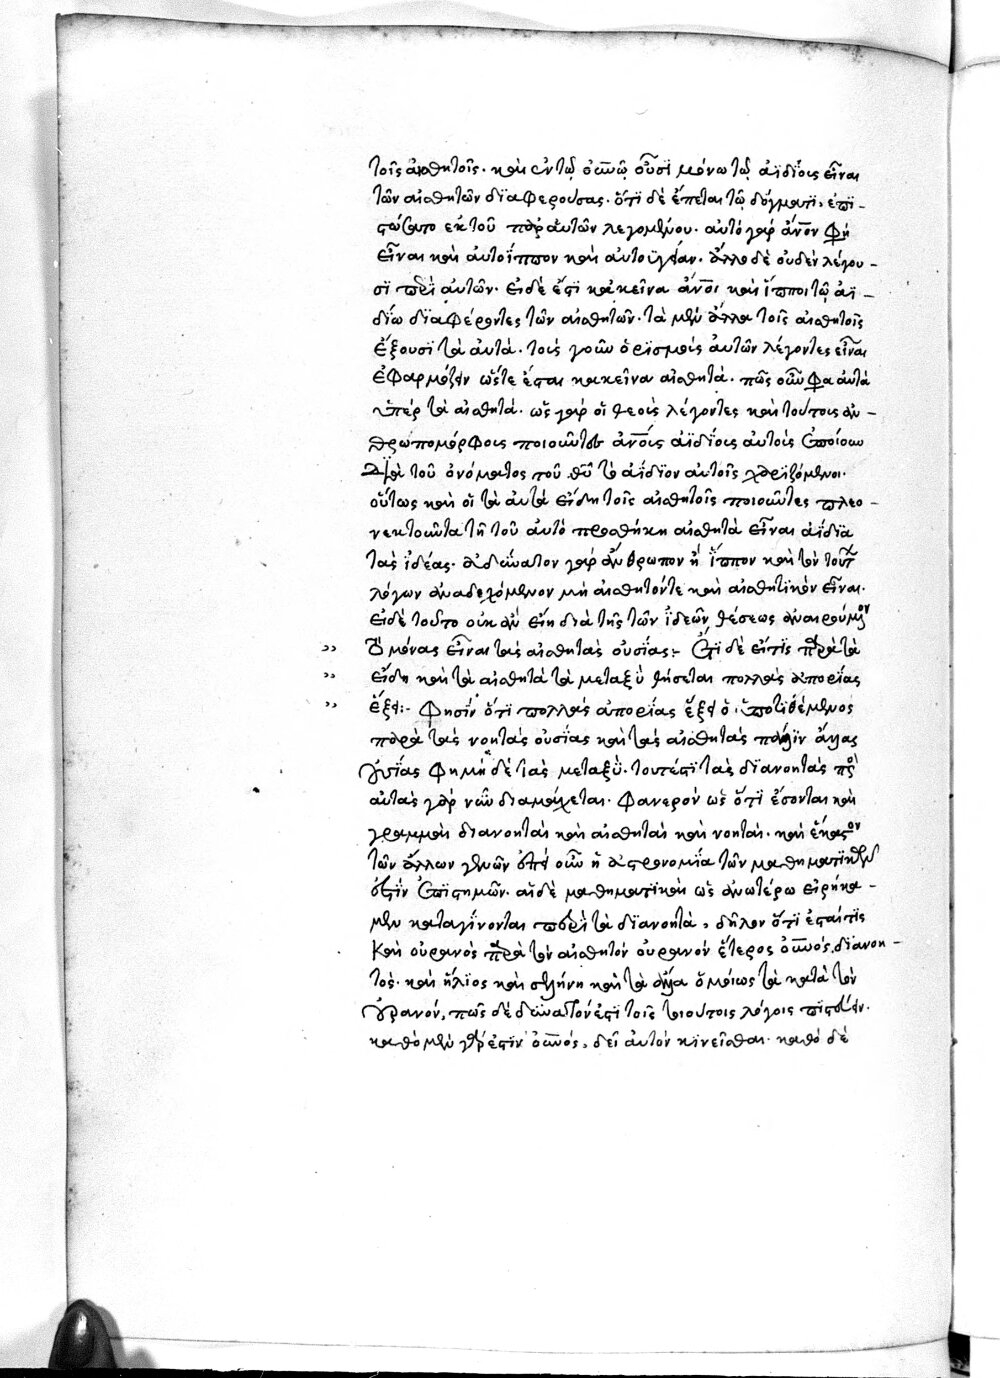 τοῖς αἰσθητοῖς. καὶ ἐν τῷ οὐνῷ οὖσι μόνω τῷ ἀϊδίοις εἶναι
τῶν αἰσθητῶν διαφερούσας. ὅτι δὲ ἕπεται τῷ δόγματι, ἐπι-
στώσατο ἐκ τοῦ παρ' αὐτῶν λεγομένου. αὐτὸ γὰρ ἄνον φη
εἶναι καὶ αὐτοΐππον καὶ αὐτοϋγείαν. ἄλλο δὲ οὐδὲν λέγου-
σι περὶ αὐτῶν. εἰ δὲ ἐστὶ κἀκεῖνα ἄνοι καὶ ἵπποι τῷ ἀϊ-
δίω διαφέροντες τῶν αἰσθητῶν. τὰ μὲν ἄλλα τοῖς αἰσθητοῖς
ἕξουσι τὰ αὐτά. τοὺς γοῦν ὁρισμοὺς αὐτῶν λέγοντες εἶναι
ἐφαρμόζειν ὥστε ἔσται κἀκεῖνα αἰσθητά. πῶς οὖν αὐτὰ
ὑπὲρ τὰ αἰσθητά. ὡς γὰρ οἱ θεοὺς λέγοντες καὶ τούτοις ἀν-
θρωπομόρφοις ποιοῦντες ἀνοις ἀϊδίοις αὐτοὺς ἐποίουν
διὰ τοῦ ὀνόματος τοῦ θυ τὸ ἀΐδιον αὐτοῖς χαριζόμενοι.
οὕτως καὶ οἱ τὰ αὐτὰ εἴδη τοῖς αἰσθητοῖς ποιοῦντες πλεο-
νεκτοῦντα τῇ τοῦ αὐτὸ προσθήκῃ αἰσθητὰ εἶναι ἀΐδια
τὰς ἰδέας. ἀδύνατον γὰρ ἄνθρωπον ἢ ἵππον καὶ τὸν τούτ
λόγων ἀναδεχόμενον μὴ αἰσθητόν τε καὶ αἰσθητικὸν εἶναι.
εἰ δὲ τοῦτο οὐκ ἂν εἴη διὰ τῆς τῶν ἰδεῶν θέσεως ἀναιρούμενον
τὸ μόνας εἶναι τὰς αἰσθητὰς οὐσίας:- ἔτι δὲ εἴ τις παρὰ τὰ
εἴδη καὶ τὰ αἰσθητὰ τὰ μεταξὺ θήσεται πολλὰς ἀπορίας
ἕξει:- φησὶν ὅτι πολλὰς ἀπορίας ἕξει ὁ ὑποτιθέμενος
παρὰ τὰς νοητὰς οὐσίας καὶ τὰς αἰσθητὰς πάλιν ἄλλας
οὐσίας φημὶ δὲ τὰς μεταξὺ. τουτέστι τὰς διανοητὰς πρὸς
αὐτὰς γὰρ νῦν διαμάχεται. φανερὸν ὡς ὅτι ἔσονται καὶ
γραμμαὶ διανοηταὶ καὶ αἰσθηταὶ καὶ νοηταί. καὶ ἕκαστον
τῶν ἄλλων γενῶν ἐπεὶ οὖν ἡ ἀστρονομία τῶν μαθηματικῶν
ἐστὶν ἐπιστημῶν. αἱ δὲ μαθηματικαὶ ὡς ἀνωτέρω εἰρήκα-
μεν καταγίνονται περὶ τὰ διανοητὰ, δῆλον ὅτι ἔσται τις
καὶ οὐρανὸς παρὰ τὸν αἰσθητὸν οὐρανὸν ἕτερος οὐνὸς διανοη-
τὸς. καὶ ἥλιος καὶ σελήνη καὶ τὰ ἄλλα ὁμοίως τὰ κατὰ τὸν
οὐρανόν, πῶς δὲ δυνατόν ἐστι τοῖς τοιούτοις λόγοις πιστεύειν.
καθὸ μὲν γάρ ἐστιν οὐνός, δεῖ αὐτὸν κινεῖσθαι. καθὸ δὲ